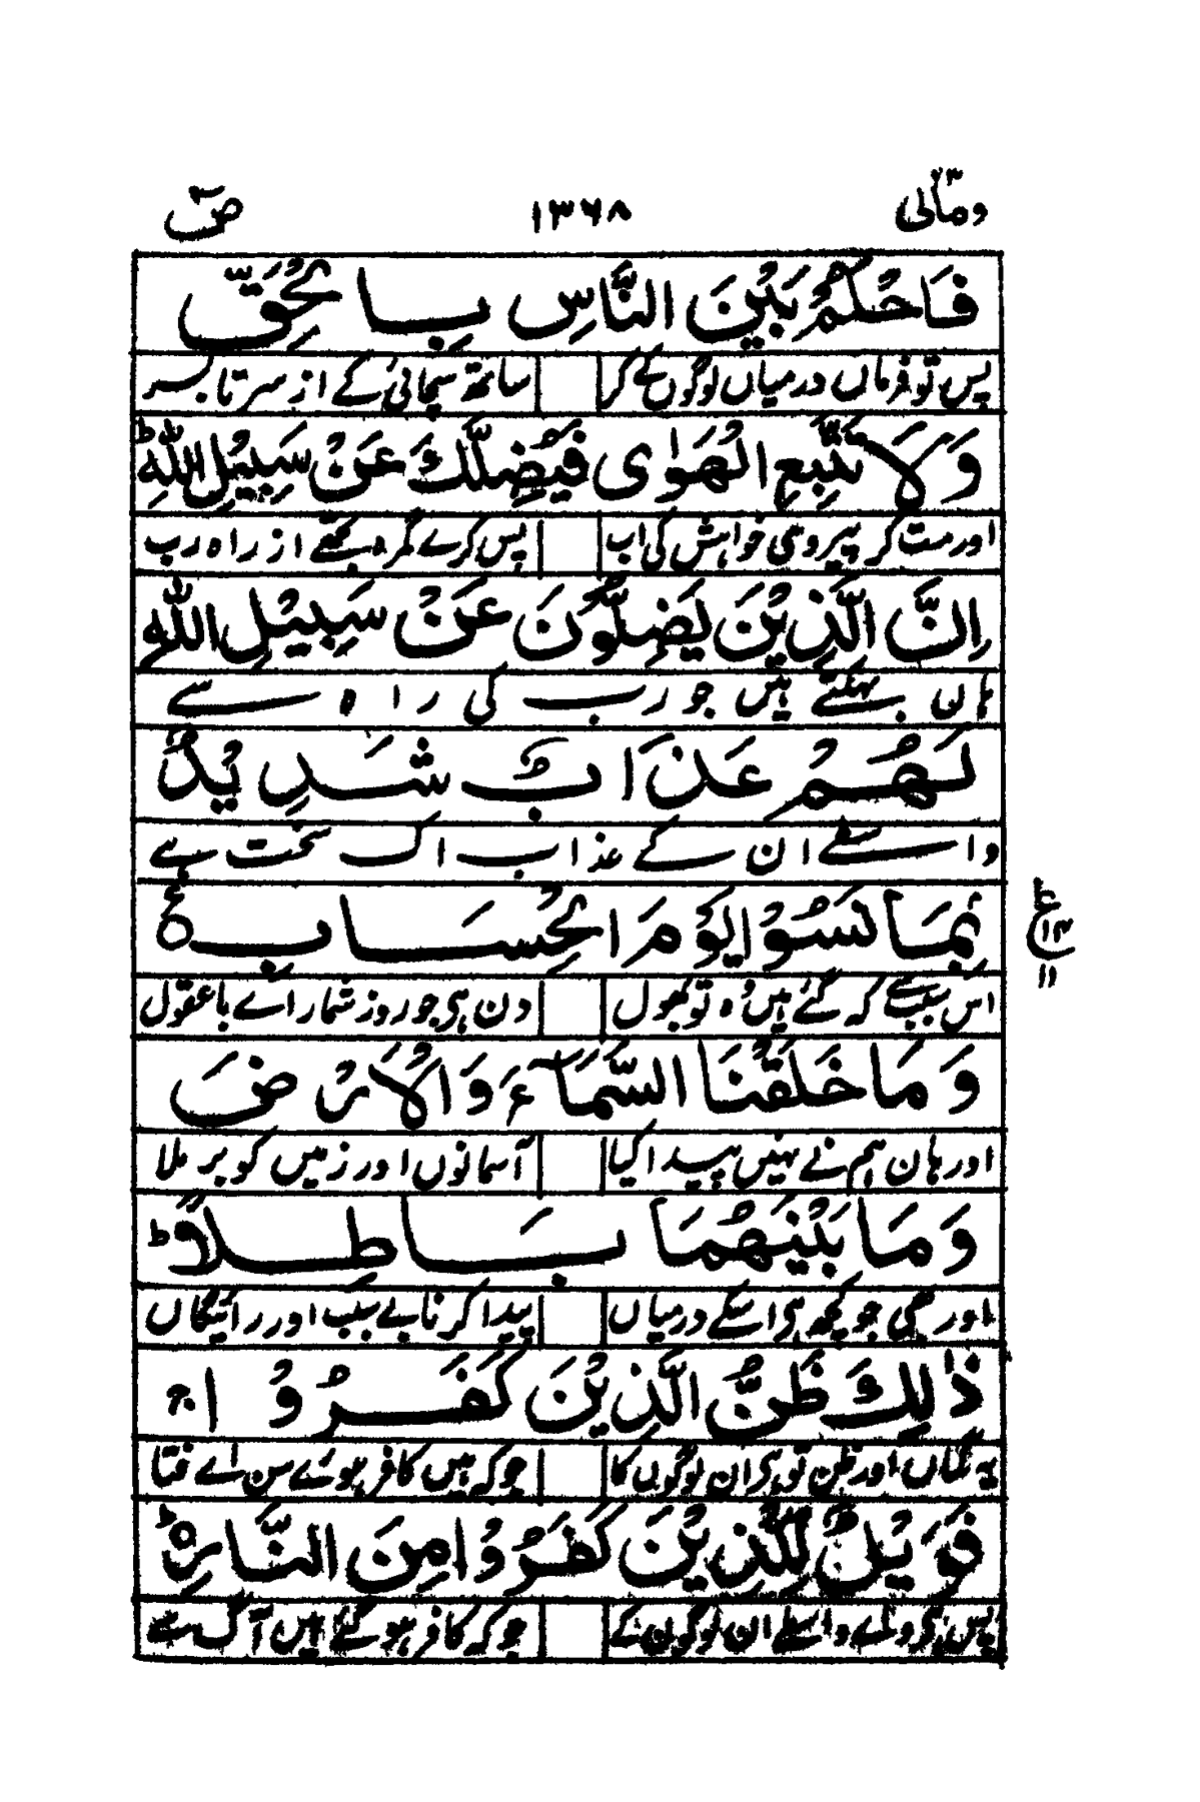 ومالی ۲۳ ۱۳۶۸ صٓ
فَاحْكُمْ بَيْنَ النَّاسِ بِالْحَقِّ
پس تو فرماں درمیاں لوگوں کے کر ساتھ سچائی کے از سر تا بسر
وَلَا تَتَّبِعِ الْهَوٰى فَيُضِلَّكَ عَنْ سَبِيْلِ اللّٰهِ ط
اور مت کر پیروی خواہش کی اب پس کرے گمرہ تجھے از راہ رب
اِنَّ الَّذِيْنَ يَضِلُّوْنَ عَنْ سَبِيْلِ اللّٰهِ
ہاں بہکتے ہیں جو رب کی راہ سے
لَهُمْ عَذَابٌ شَدِيْدٌ
واسطے ان کے عذاب اک سخت ہے
بِمَا نَسُوْا يَوْمَ الْحِسَابِ ع
اس سبب سے کہ گئے ہیں وہ تو بھول دن ہی جو روز شمار اے باعقول
ع ۱۳ ۱۱
وَمَا خَلَقْنَا السَّمَآءَ وَالْاَرْضَ
اور ہاں ہم نے نہیں پیدا کیا آسمانوں اور زمیں کو برملا
وَمَا بَيْنَهُمَا بَاطِلًا ط
اور بھی جو کچھ ہی اسکے درمیاں پیدا کرنا بے سبب اور رائیگاں
ذٰلِكَ ظَنُّ الَّذِيْنَ كَفَرُوْا ج
یہ گماں اور ظن تو ہی ان لوگوں کا جو کہ ہیں کافر ہوئے سن اے فتا
فَوَيْلٌ لِّلَّذِيْنَ كَفَرُوْا مِنَ النَّارِ ط
پس واسطے ان لوگوں کے جو کہ کافر ہو گئے ہیں آگ سے